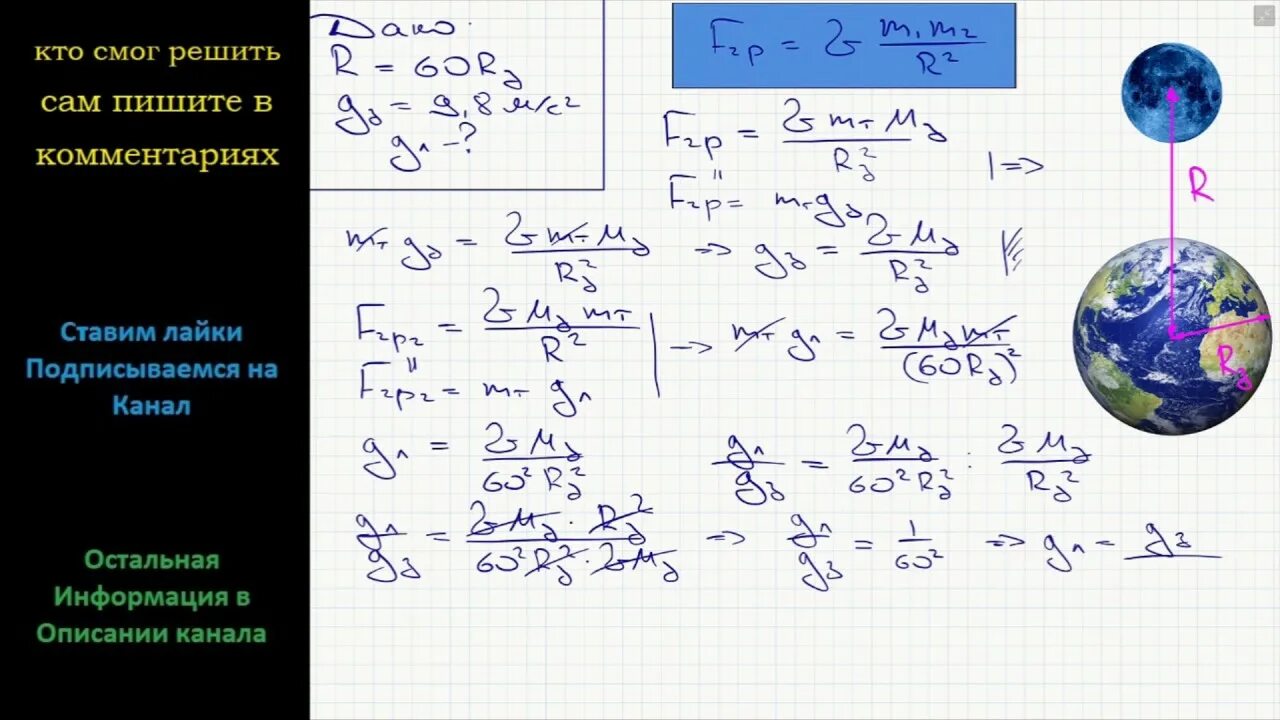 кто смог решить
сам пишите в
комментариях
Ставим лайки
Подписываемся на
Канал
Остальная
Информация в
Описании канала
Дано:
R = 60Rз
gз = 9,8 м/с²
gл - ?
Fгр = G m₁m₂ / R²
Fгр = G mт Mз / Rз²
Fгр = mт gз
| =>
mт gз = G mт Mз / Rз² => gз = G Mз / Rз²
Fгр₂ = G Mз mт / R²
Fгр₂ = mт gл
| -> mт gл = G Mз mт / (60Rз)²
gл = G Mз / 60² Rз²
gл / gз = G Mз / 60² Rз² : G Mз / Rз²
gл / gз = G Mз · Rз² / 60² Rз² · G Mз => gл / gз = 1 / 60² => gл = gз
R
Rз